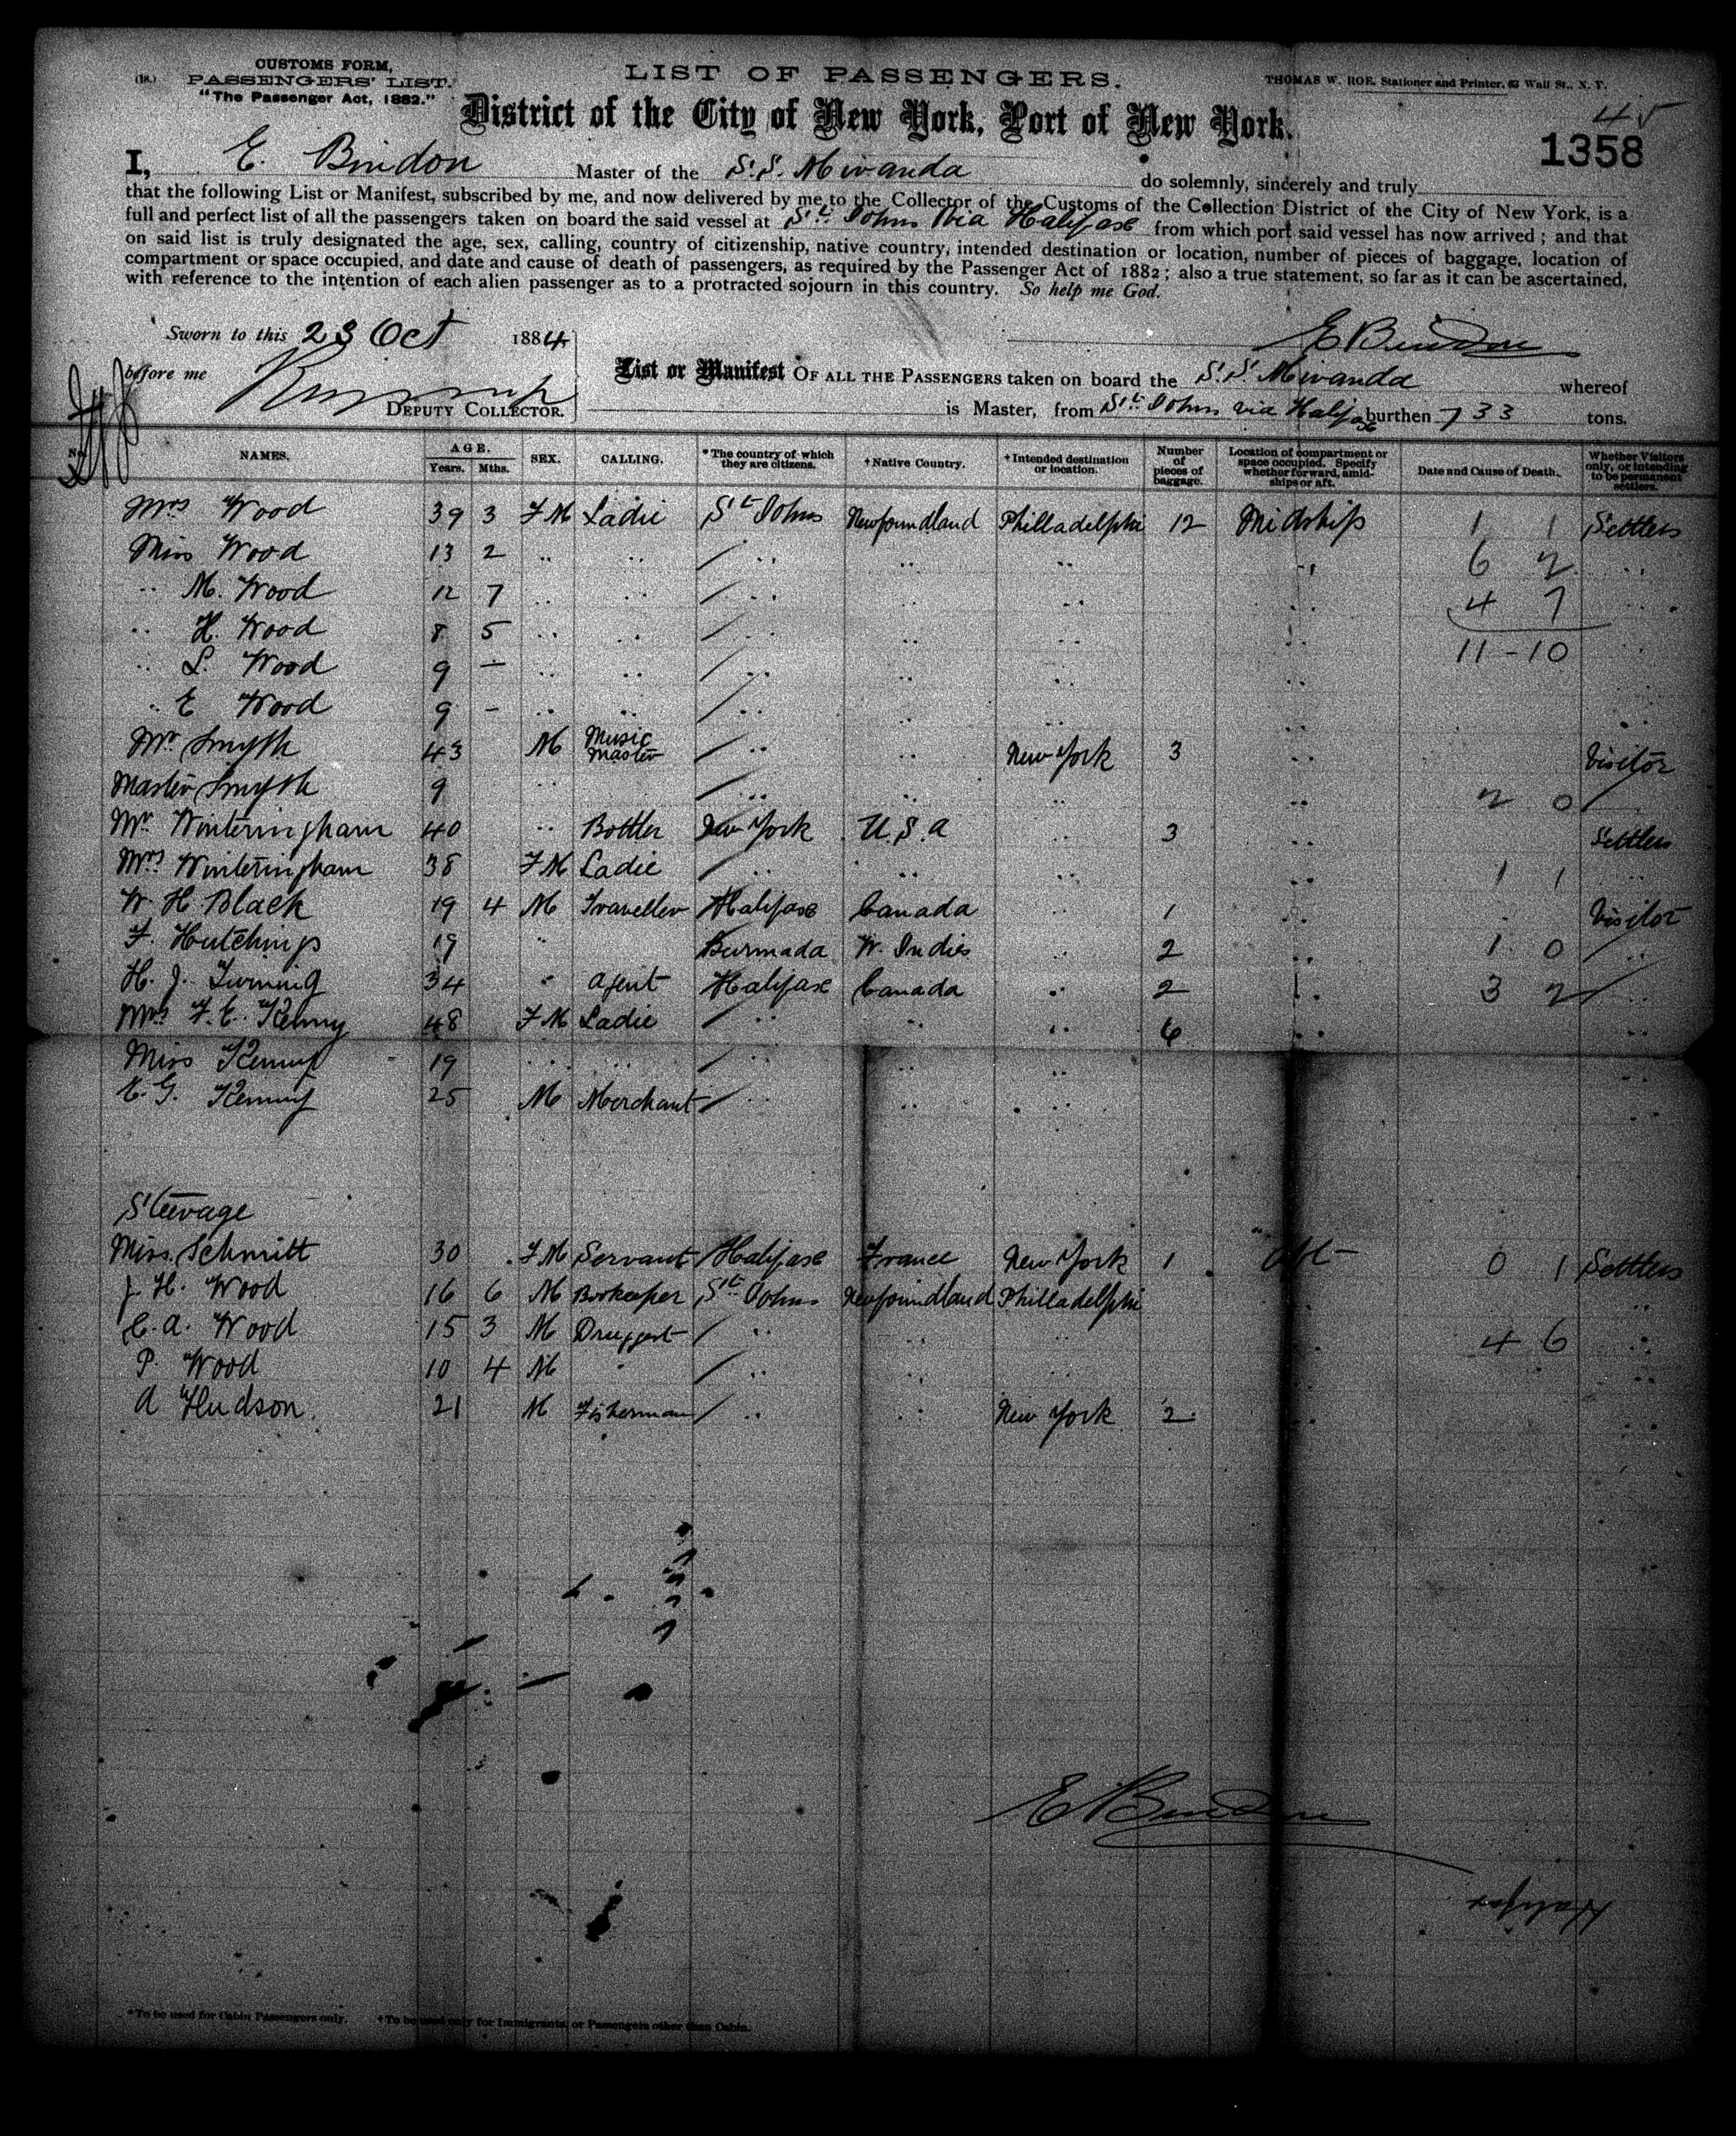 (18.)
CUSTOMS FORM,
PASSENGERS' LIST.
"The Passenger Act, 1882."
LIST OF PASSENGERS.
THOMAS W. ROE, Stationer and Printer, 63 Wall St., N. Y.
District of the City of New York, Port of New York.
45
1358
I, E. Bindon Master of the S.S. Miranda do solemnly, sincerely and truly
that the following List or Manifest, subscribed by me, and now delivered by me to the Collector of the Customs of the Collection District of the City of New York, is a
full and perfect list of all the passengers taken on board the said vessel at St Johns Via Halifax from which port said vessel has now arrived; and that
on said list is truly designated the age, sex, calling, country of citizenship, native country, intended destination or location, number of pieces of baggage, location of
compartment or space occupied, and date and cause of death of passengers, as required by the Passenger Act of 1882; also a true statement, so far as it can be ascertained,
with reference to the intention of each alien passenger as to a protracted sojourn in this country. So help me God.
Sworn to this 23 Oct 1884
E Bindon
before me
DEPUTY COLLECTOR.
List or Manifest OF ALL THE PASSENGERS taken on board the S.S. Miranda whereof
is Master, from St Johns via Halifax burthen 733 tons.
No. NAMES. AGE. Years. Mths. SEX. CALLING. *The country of which they are citizens. †Native Country. †Intended destination or location. Number of pieces of baggage. Location of compartment or space occupied. Specify whether forward, amidships or aft. Date and Cause of Death. Whether Visitors only, or intending to be permanent settlers.
Mrs Wood 39 3 FM Ladie St Johns Newfoundland Philladelphi 12 Midship 1 1 Settlers
Miss Wood 13 2 .. .. .. .. .. .. 6 2 ..
.. M. Wood 12 7 .. .. .. .. .. .. 4 7 ..
.. H. Wood 8 5 .. .. .. .. .. .. 11-10 ..
.. L. Wood 9 — .. .. .. .. .. ..
.. E Wood 9 - .. .. .. .. .. .. ..
Mr Smyth 43 M Music Master .. .. New York 3 .. Visitor
Master Smyth 9 .. .. .. .. .. 2 0
Mr Winteringham 40 .. Bottler New York U.S.A .. 3 .. Settlers
Mrs Winteringham 38 FM Ladie .. .. .. .. 1 1 ..
W. H. Black 19 4 M Traveller Halifax Canada .. 1 .. Visitor
F. Hutchings 19 .. Burmada W. Indies .. 2 .. 1 0 ..
H. J. Twining 34 .. Agent Halifax Canada .. 2 .. 3 2 ..
Mrs F. E. Kenny 48 FM Ladie .. .. .. 6 .. ..
Miss Kenny 19 .. .. .. .. .. ..
E. G. Kenny 25 M Merchant .. .. .. ..
Steerage
Miss Schmitt 30 FM Servant Halifax France New York 1 Aft 0 1 Settlers
J. H. Wood 16 6 M Bookeeper St Johns Newfoundland Philladelphi ..
C. A. Wood 15 3 M Druggest .. .. .. .. 4 6 ..
P. Wood 10 4 M .. .. .. .. ..
A Hudson. 21 M Fisherman .. .. New York 2 ..
E Bindon
Halifax
*To be used for Cabin Passengers only. †To be used only for Immigrants, or Passengers other than Cabin.